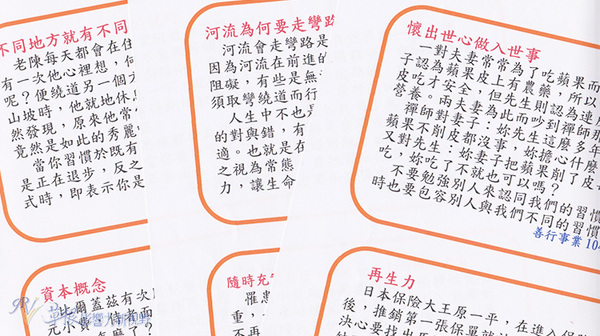 不同地方就有不同
老陳每天都會在住
有一次他心裡想,何
呢?便繞道另一個方
山坡時,他就地休息
然發現,原來他常
竟然是如此的秀麗
當你習慣於既有
是正在退步,反之
式時,即表示你是
河流為何要走彎路
河流會走彎路是
因為河流在前進的
阻礙,有些是無
須取彎繞道而行
人生中不也
的對與錯,有
適。也就是在
之視為常態
力,讓生命
懷出世心做入世事
一對夫妻常常為了吃蘋果而
子認為蘋果皮上有農藥,所以
皮吃才安全,但先生則認為連皮
營養。兩夫妻為此而吵到禪師那
禪師對妻子:妳先生這麼多年
蘋果不削皮都沒事,妳擔心什麼
又對先生:妳妻子把蘋果削了皮
吃,妳吃了不就也可以嗎?
不要勉強別人來認同我們的習慣
時也要包容別人與我們不同的習慣
善行事業 104
資本概念
比爾蓋茲有次
隨時充
罹患
重,
不再
再生力
日本保險大王原一平,在進入保
後,推銷第一張保單就
決心要找出